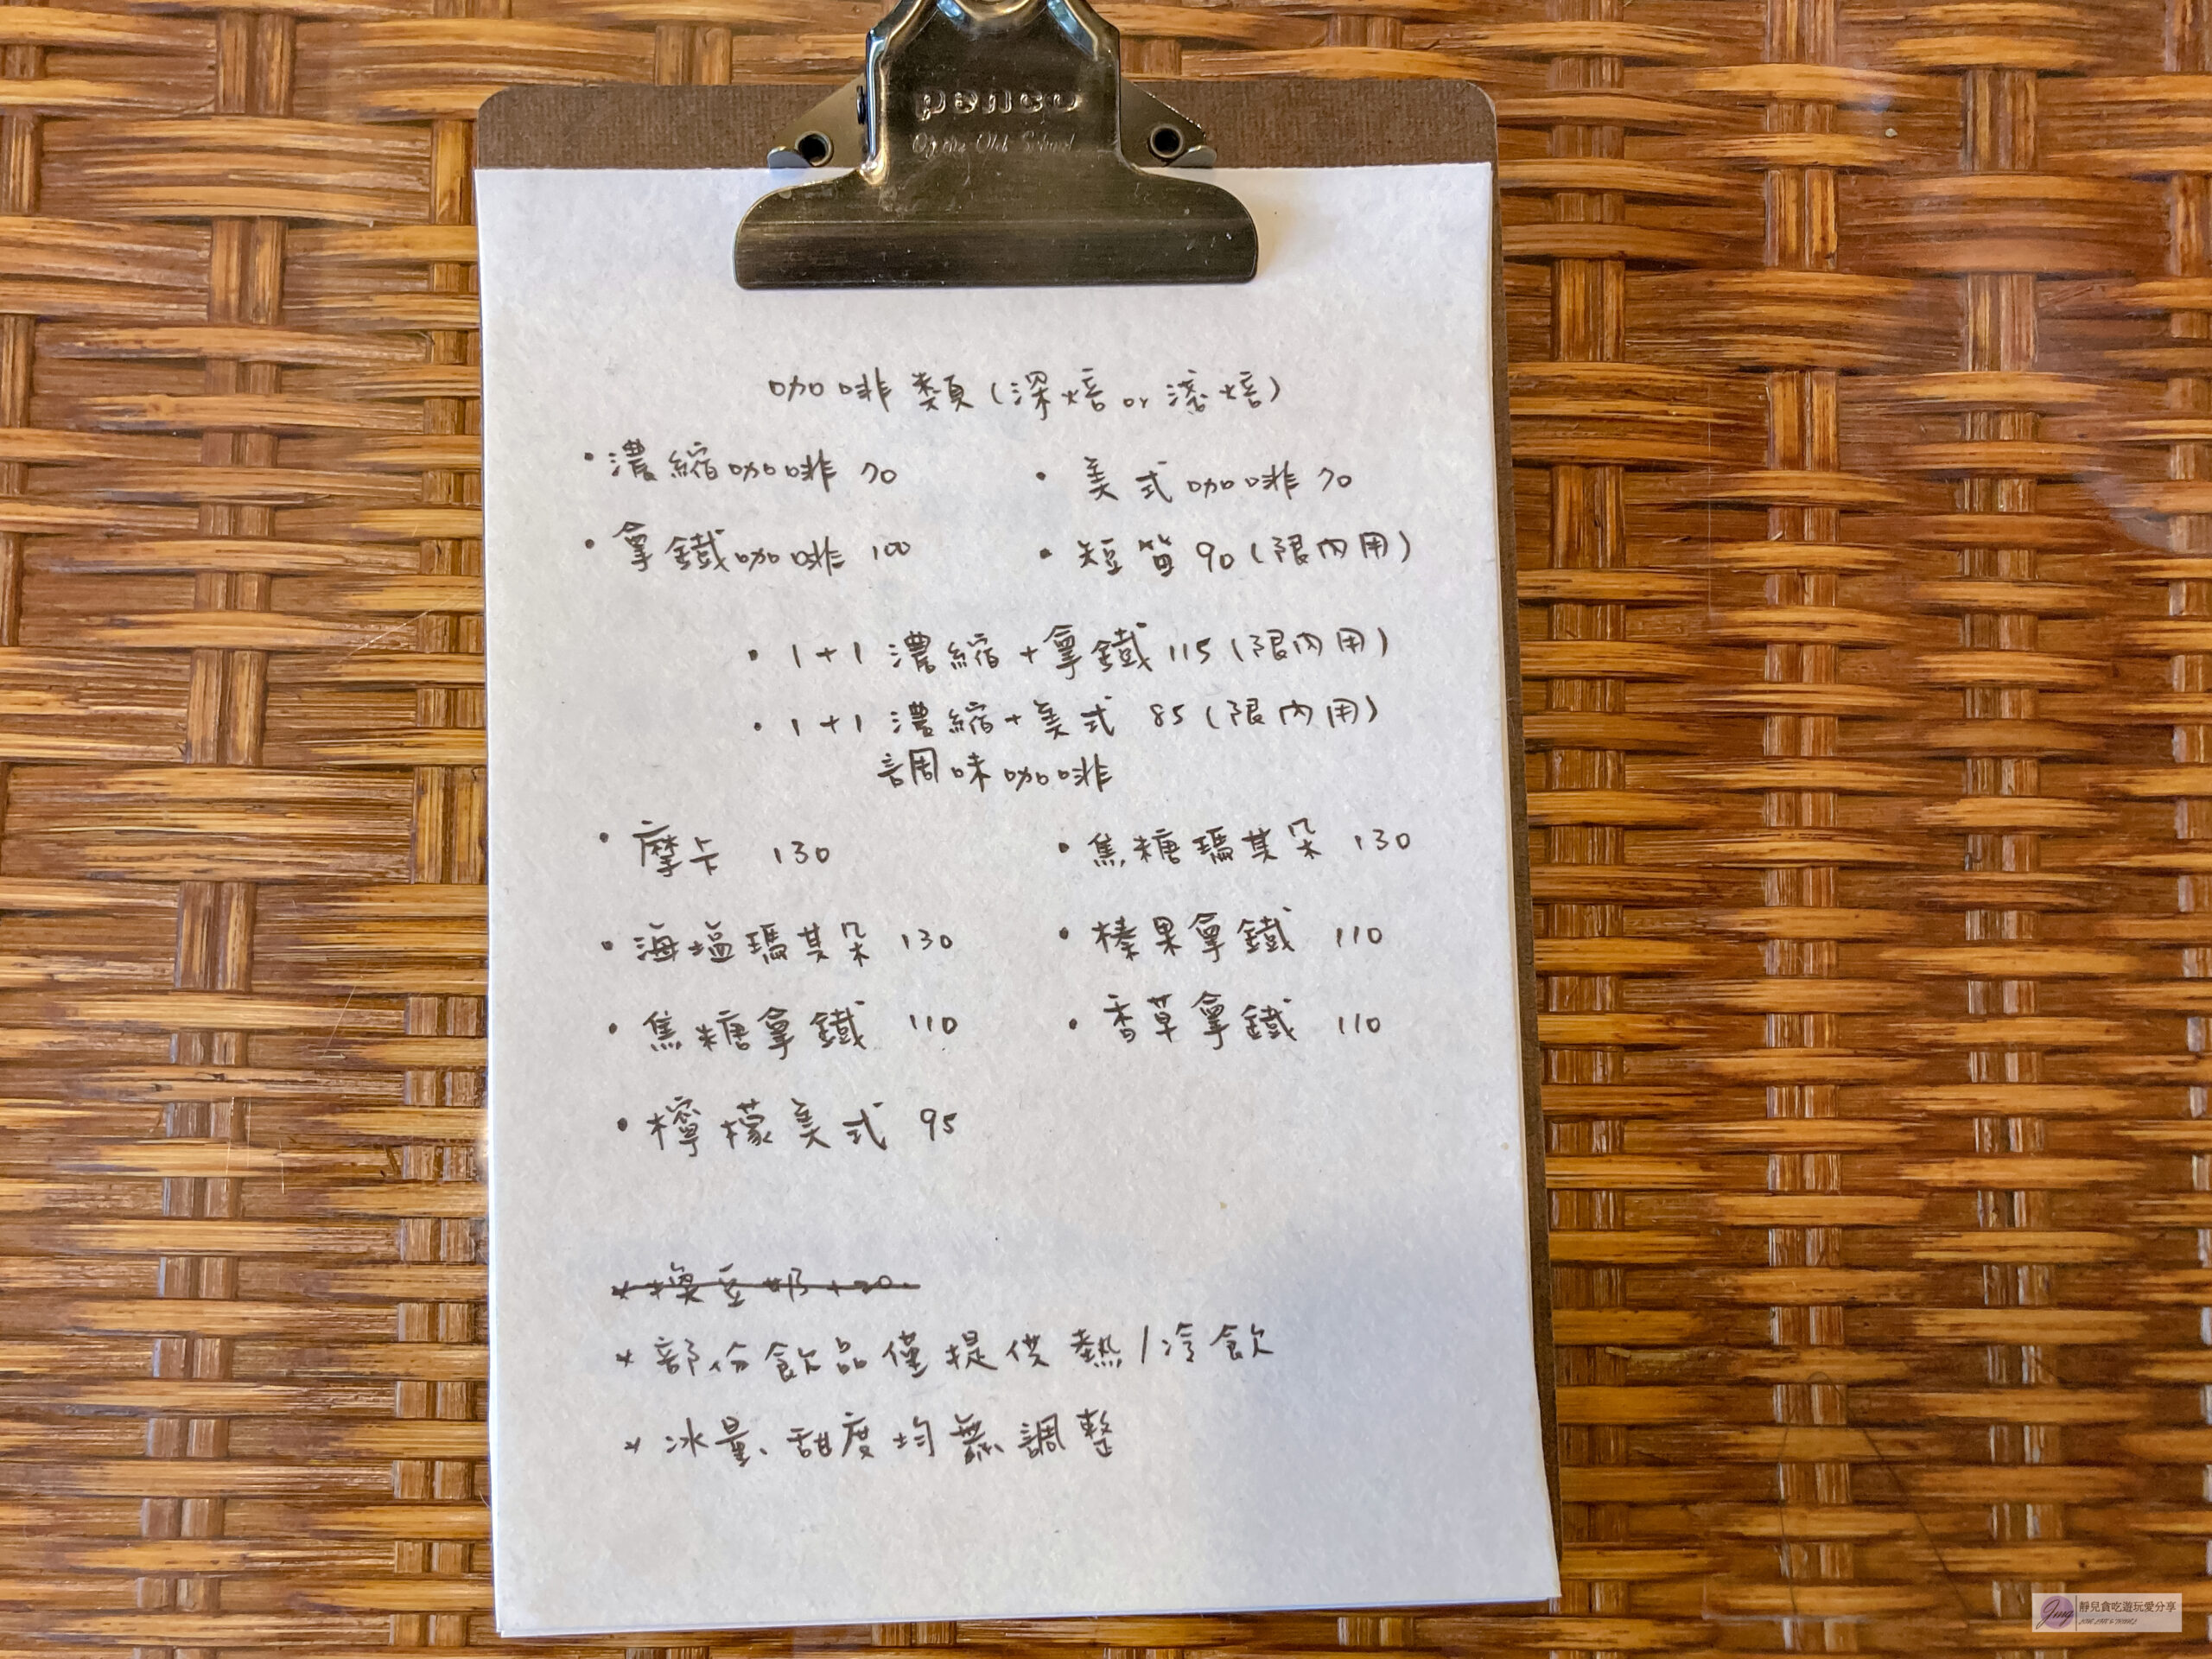 penco
Of the Old School
咖啡類(深焙or淺焙)
・濃縮咖啡 70 ・美式咖啡 70
・拿鐵咖啡 100 ・短笛 90 (限內用)
・1+1 濃縮+拿鐵 115 (限內用)
・1+1 濃縮+美式 85 (限內用)
調味咖啡
・摩卡 130 ・焦糖瑪其朵 130
・海塩瑪其朵 130 ・榛果拿鐵 110
・焦糖拿鐵 110 ・香草拿鐵 110
・檸檬美式 95
*換豆奶+20.
*部份飲品僅提供熱/冷飲
*冰量、甜度均無調整
Jing 靜兒貪吃遊玩愛分享